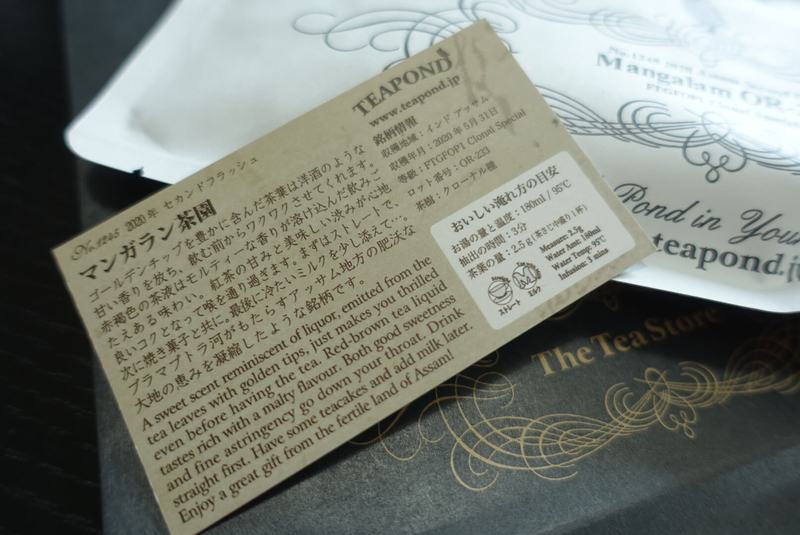 TEAPOND
www.teapond.jp
No.1245 2020年 セカンドフラッシュ
マンガラン茶園
ゴールデンチップを豊かに含んだ茶葉は洋酒のような
甘い香りを放ち、飲む前からワクワクさせてくれます。
赤褐色の茶液はモルティーな香りが溶け込んだ飲みご
たえある味わい。紅茶の甘みと美味しい渋みが心地
良いコクとなって喉を通り過ぎます。まずはストレートで、
次に焼き菓子と共に、最後に冷たいミルクを少し添えて…
ブラマプトラ河がもたらすアッサム地方の肥沃な
大地の恵みを凝縮したような銘柄です。
A sweet scent reminiscent of liquor, emitted from the
tea leaves with golden tips, just makes you thrilled
even before having the tea. Red-brown tea liquid
tastes rich with a malty flavour. Both good sweetness
and fine astringency go down your throat. Drink
straight first. Have some teacakes and add milk later.
Enjoy a great gift from the fertile land of Assam!
銘柄情報
収穫地域：インド アッサム
収穫年月：2020年5月31日
等級：FTGFOP1 Clonal Special
ロット番号：OR-233
茶樹：クローナル種
おいしい淹れ方の目安
お湯の量と温度：180ml / 95℃
抽出の時間：3分
茶葉の量：2.5g (茶さじ中盛り1杯)
Measure: 2.5g
Water Amt: 180ml
Water Temp: 95℃
Infusion: 3 mins
ストレート ミルク
Mangalam OR-
FTGFOP1
Pond in Your
teapond.j
The Tea Store